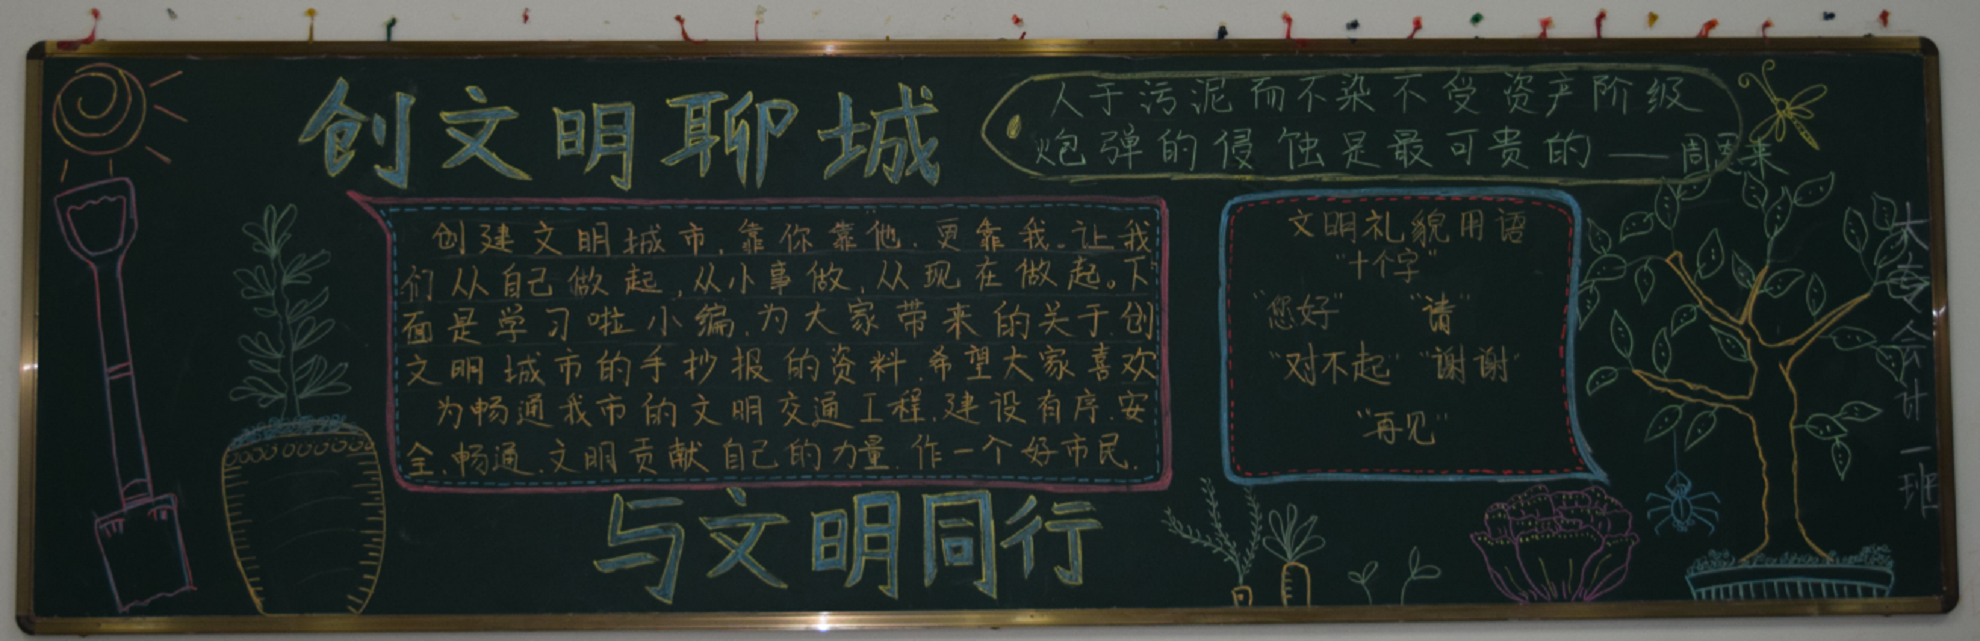 创文明聊城
人于污泥而不染不受资产阶级
炮弹的侵蚀是最可贵的——周恩来
创建文明城市,靠你靠他,更靠我。让我
们从自己做起,从小事做,从现在做起。下
面是学习啦小编,为大家带来的关于创
文明城市的手抄报的资料,希望大家喜欢
为畅通我市的文明交通工程,建设有序、安
全、畅通、文明贡献自己的力量,作一个好市民.
文明礼貌用语
“十个字”
“您好” “请”
“对不起” “谢谢”
“再见”
大专会计一班
与文明同行